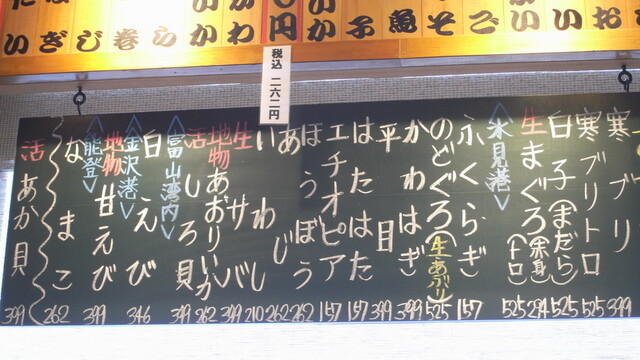 税込 二六二円
寒ブリ 399
寒ブリトロ 525
白子(まだら) 525
生まぐろ(赤身) 294
(トロ) 525
<氷見港>
ふくらぎ 157
のどぐろ(生あぶり) 525
かわはぎ 399
平目 399
はたはた 157
エチオピア 157
ほうぼう 262
あじ 262
いわし 210
生サバ 399
地物あおりいか 262
活しろ貝 399
<富山湾内>
白えび 346
<金沢港>
地物甘えび 399
<能登>
なまこ 262
活あか貝 399